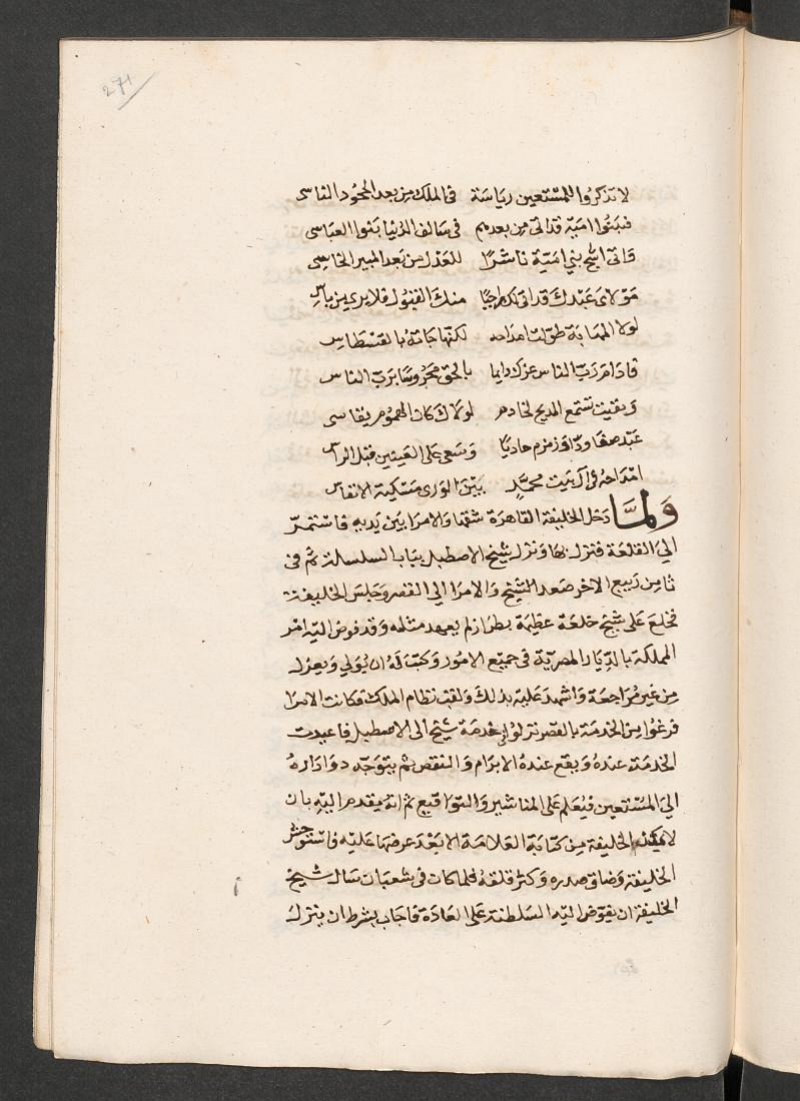 271
لا تذكروا للمستعين رياسة في الملك من بعد الجحود الناسي
فبنوا امية قد اتى من بعدهم في سالف الدنيا بنوا العباسي
واتى اشج بني امية ناشرًا للعدل من بعد المبير الخاسي
مولاى عبدك قد اتى لك راجيًا منك القبول فلا يرى من باس
لولا المهابة طولت امداحه لكنها جاته بالقسطاس
فادام رب الناس عزك دايما بالحق محروسًا برب الناس
وبقيت تستمع المديح لخادم لولاك كان الهموم يقاسي
عبد صفا ودّا وزمزم حاديًا وسعى على العينين قبل الراس
امداحه في آل بيت محمدٍ بين الورى مسكية الانفاس
ولمّا دخل الخليفة القاهرة شقها والامرا بين يديه فاستمر
الى القلعة فنزل بها ونزل شيخ الاصطبل بباب السلسلة ثم في
ثامن ربيع الاخر صعد الشيخ والامرا الى القصر وجلس الخليفة
فخلع على شيخ خلعة عظيمة بطراز لم يعهد مثله وقد فوض اليه امر
المملكة بالديار المصرية في جميع الامور وكتب له ان يولي ويعزل
من غير مراجعة واشهد عليه بذلك ولقب نظام الملك فكانت الامرا
فرغوا من الخدمة بالقصر نزلوا في خدمة شيخ الى الاصطبل فاعيدت
الخدمة عنده ويقع عنده الابرام والنقض ثم يتوجه دواداره
الى المستعين فيعلم على المناشير والتواقيع ثم انه يقدم اليه بان
لا يمكن الخليفة من كتابة العلامة الا بعد عرضها عليه فاستوحش
الخليفة وضاق صدره وكثر قلقه فلما كان في شعبان سال شيخ
الخليفة ان يفوض اليه السلطنة على العادة فاجاب بشرط ان ينزل